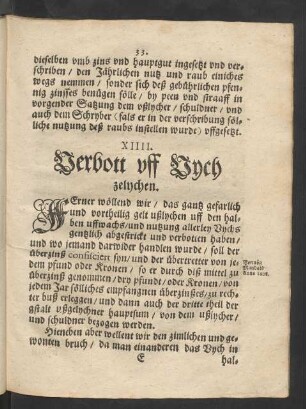 33.
dieselben vmb zins vnd hauptgut ingesetzt vnd ver-
schriben / den Jährlichen nutz vnd raub einiches
wegs nemmen / sonder sich deß gebührlichen pfen-
nig zinsses benügen sölle / by pœn vnd straaff in
vorgender Satzung dem vßlycher / schuldner / vnd
auch dem Schryber (fals er in der verschribung söl-
liche nutzung deß raubs instellen wurde) vffgesetzt.
XIIII.
Verbott vff Vych
zelychen.
FErner wöllend wir / das gantz gefarlich
vnd vortheilig gelt vßlychen vff den hal-
ben vffwachs / vnd nutzung allerley Vychs
gentzlich abgestrickt vnd verbotten haben /
vnd wo jemand darwider handlen wurde / soll der
überzinß confisciert syn / vnd der übertretter von je-
dem pfund oder Kronen / so er durch diß mittel zu
überzinß genommen / drey pfundt / oder Kronen / von
jedem Jar söliches empfangnen überzinses / zu rech-
ter buß erleggen / vnd dann auch der dritte theil der
gstalt vßgelychner hauptsum / von dem vßlycher /
vnd schuldner bezogen werden.
Hieneben aber wellent wir den zimlichen vnd ge-
wonten bruch / da man einanderen das Vych in
E hal-
Mandats
Anno